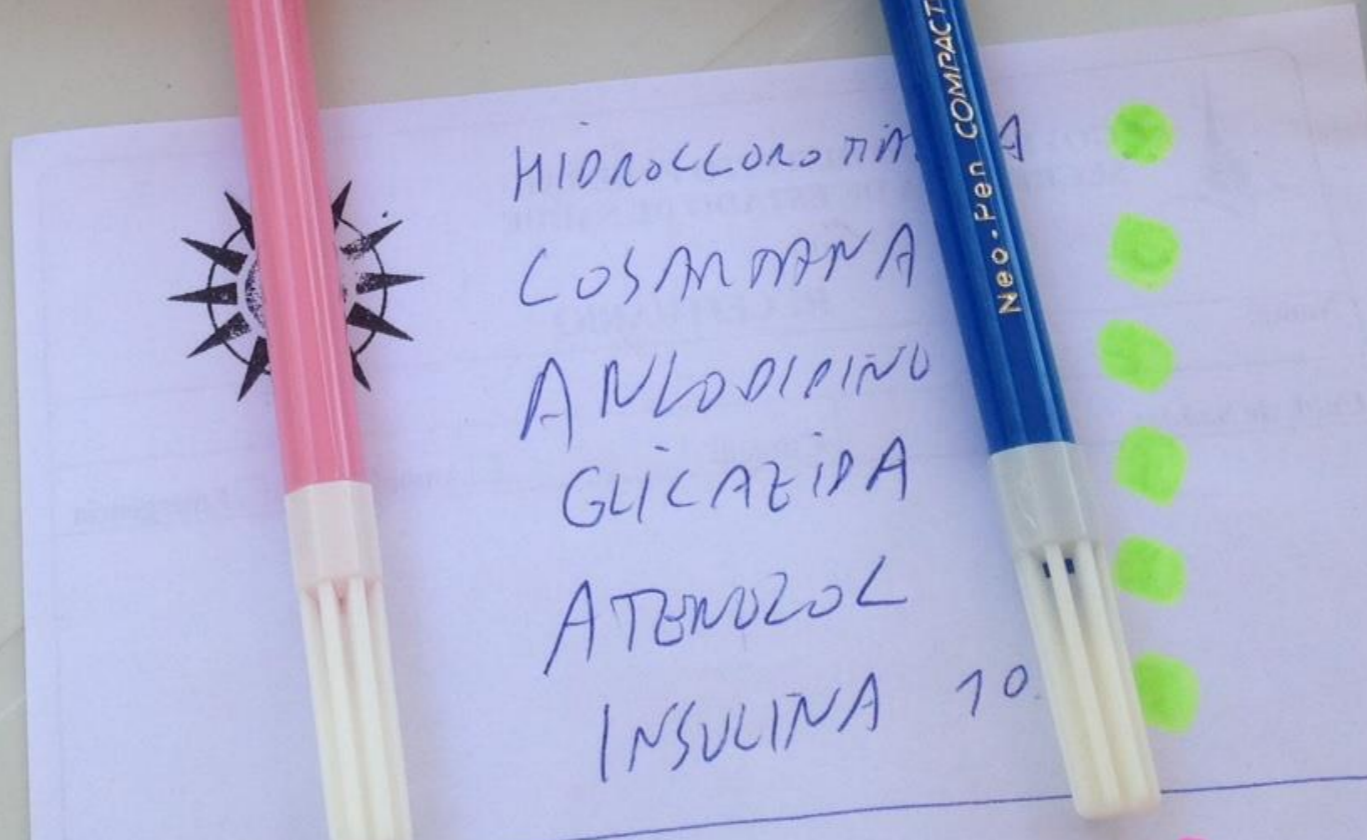 HIDROCLOROTIA A
LOSARTANA
ANLODIPINO
GLICAZIDA
ATENOLOL
INSULINA 10
Neo-Pen COMPACT